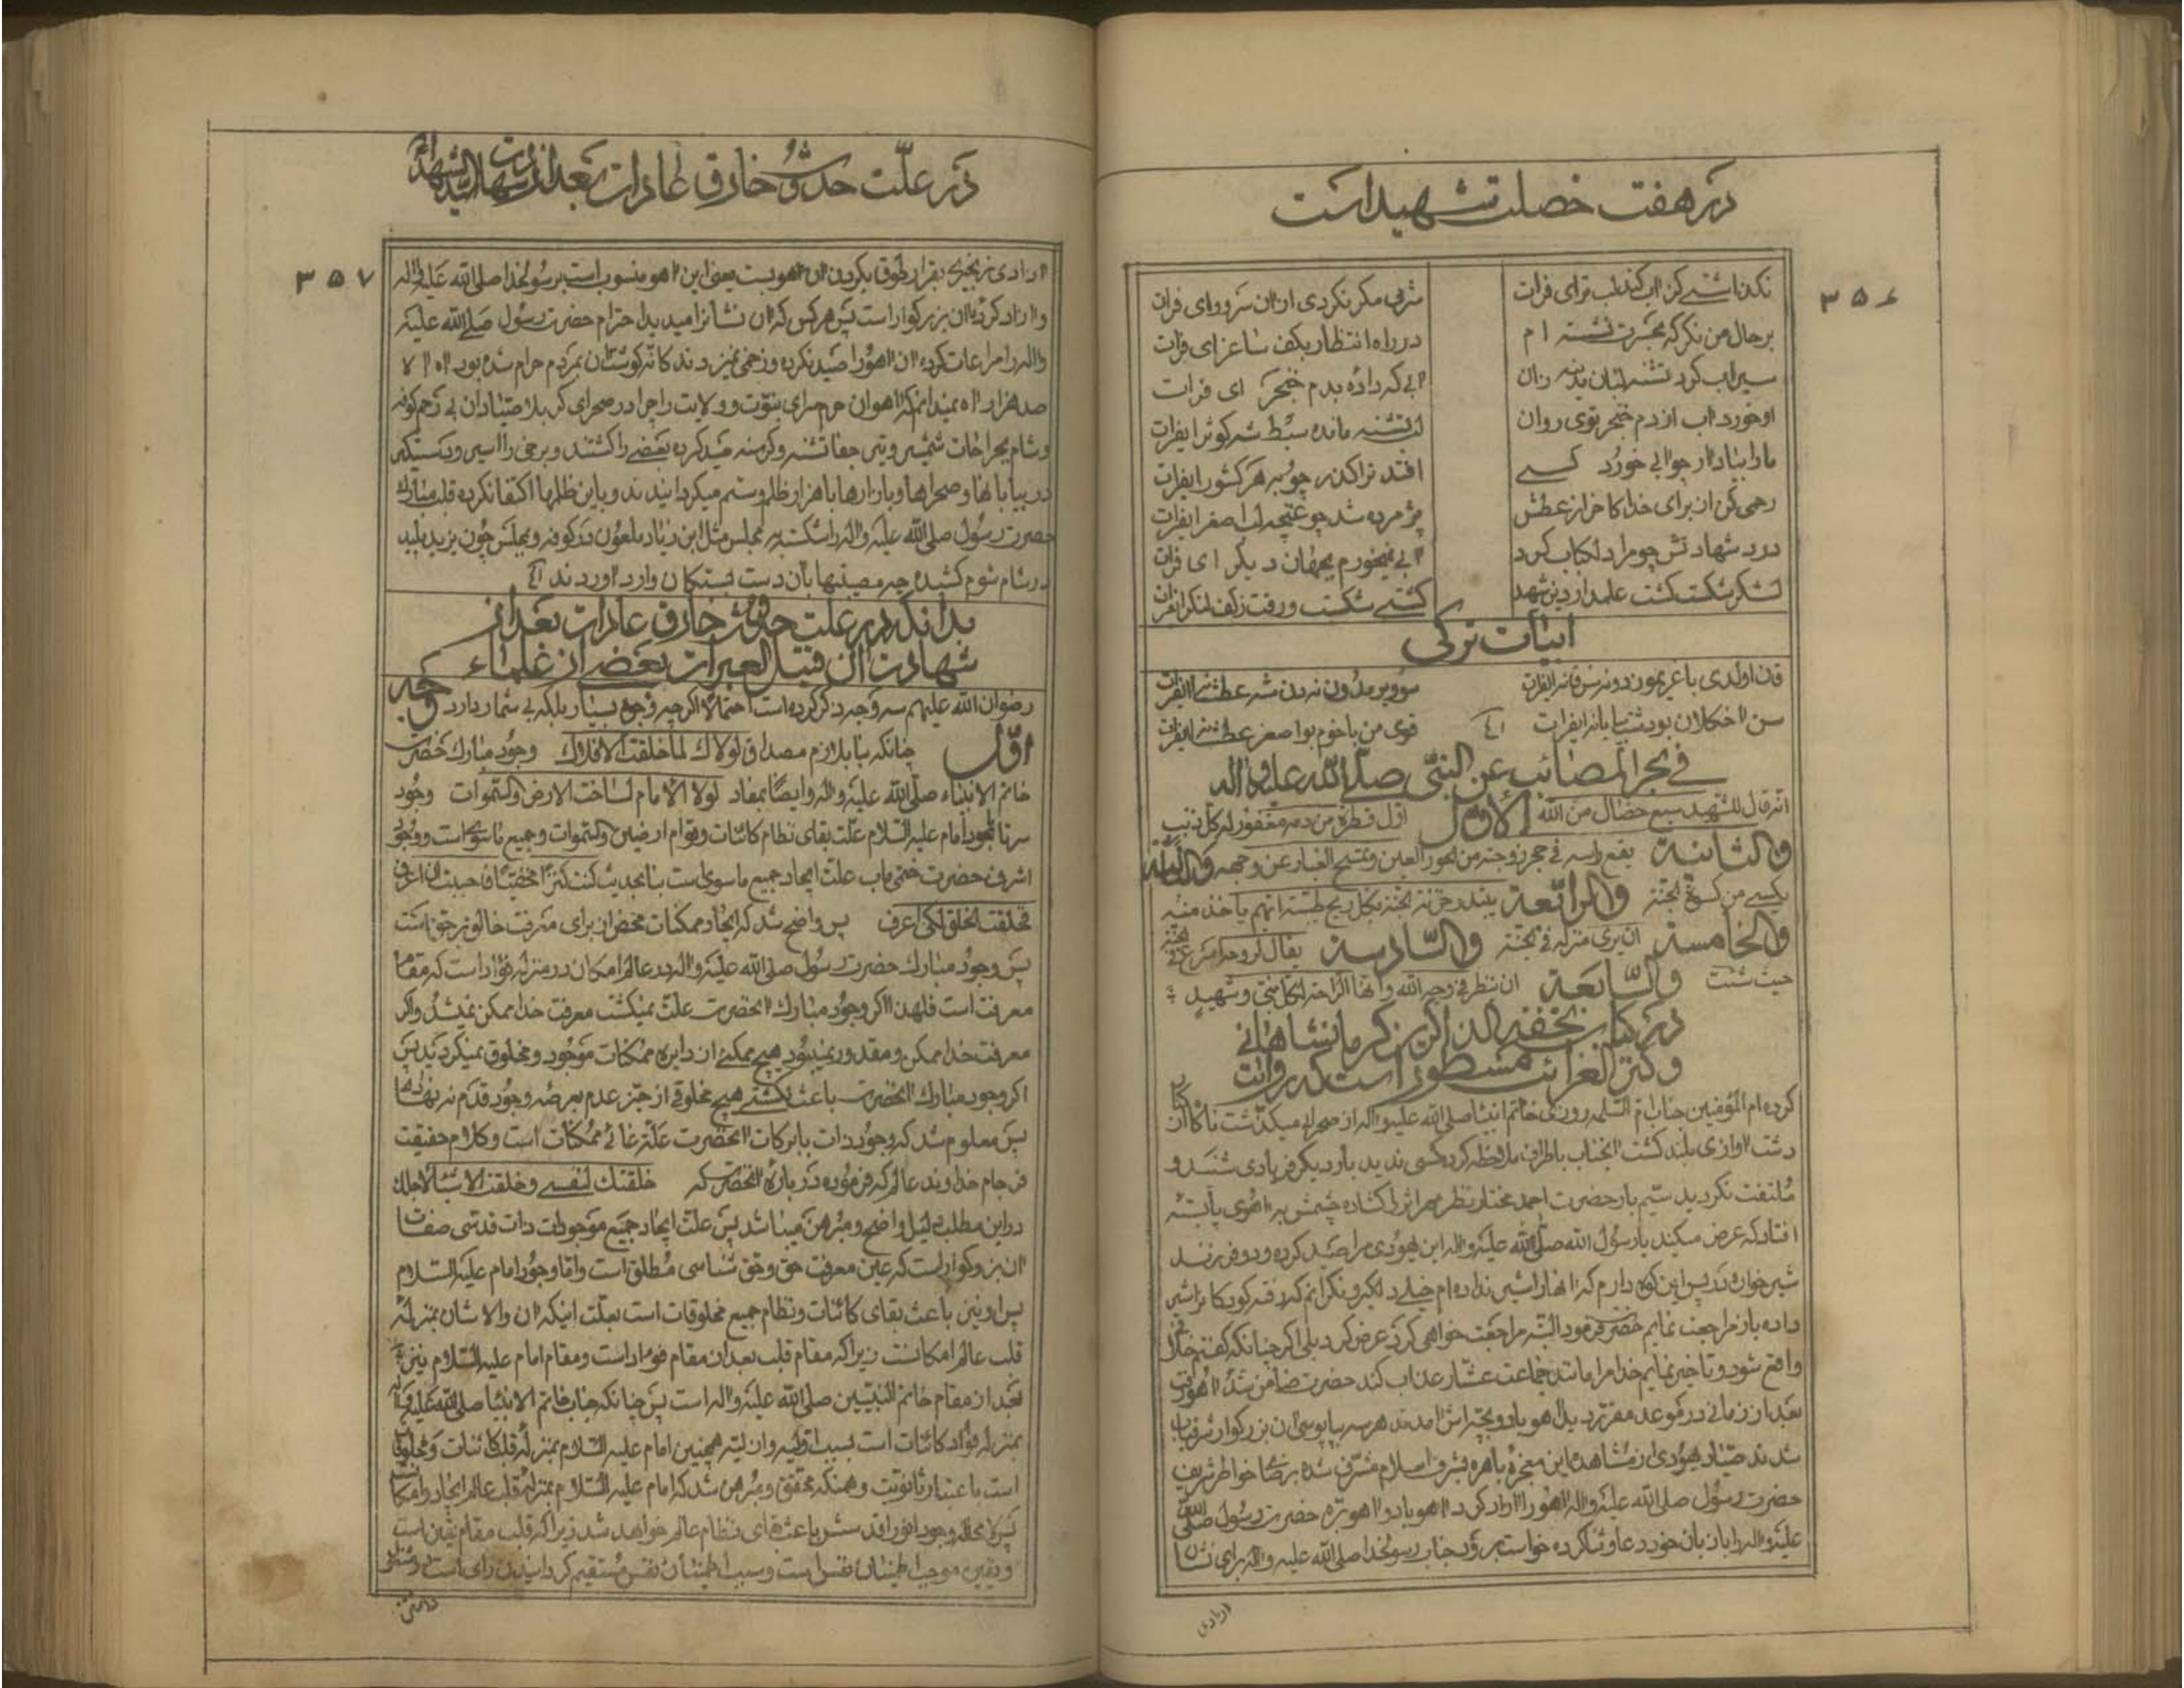 در هفت خصلت شهید است
۳۵۶
نگذاشتی کزین آب کند لب ترای فرات شرمی مگر نکردی از ان سرور ای فرات
بر حال من نگر که بحسرت نشسته ام در راه انتظار بکف ساغر ای فرات
سیراب کرد تشنه لبان بدنه زان آبی که داده بدم خنجر ای فرات
او خورد آب از دم خنجر توی روان لب تشنه مانده سبط شه کوثر ایفرات
مارا بیاد ار چو آبی خورد کسی افتد ترا گذر چو بهر کشور ایفرات
رحمی کن از برای خدا کاخر از عطش پژمرده شد چو غنچه لب اصغر ایفرات
درد شهادتش چو مرا دلکباب کرد آبی نمیخورم بجهان دیگر ای فرات
لشکر شکست کشت علمدار دین شهید کشتی شکست و رفت ز کف لنگر ایفرات
ابیات ترکی
قان اولدی باغریمون دونه سن قانه ایفرات سو ویرمدون نه دن شه عطشانه ایفرات
سن آخکلان بو دشت بیابانه ایفرات قوی من باخوم بو اصغر عطشانه ایفرات
فی بحر المصائب عن النبی صلی الله علیه و اله
انه قال للشهید سبع خصال من الله الاول اول قطرة من دمه مغفور له کل ذنب
والثانیة یقع راسه فی حجر زوجته من الحور العین و تمسح الغبار عن وجهه والثالثة
یکسی من کسوة الجنة والرابعة یبتدر خزنة الجنة بکل ریح طیبة ایهم یاخذ منه
والخامسة ان یری منزله فی الجنة والسادسة یقال لروحه اسرع فی الجنة
حیث شئت والسابعة ان تنظر فی وجه الله و انها الراحة لکل نبی و شهید
در کتاب تحفة الذاکرین کرمانشاهانی
و کنز الغرائب مسطور است که روایت
کرده ام المؤمنین جناب ام السلمه روزی خاتم انبیا صلی الله علیه و اله از صحرای میکذشت ناکاه از ان
دشت آوازی بلند کشت آنجناب باطراف ملاحظه کرد کسی ندید بار دیکر فریادی شنید و
ملتفت نکردید سیم بار حضرت احمد مختار نظر مهر اثر را کشاده چشمش به آهوی پا بسته
افتاد که عرض میکند یا رسول الله صلی الله علیه و اله این یهودی مرا صید کرده و دو فرزند
شیر خواره در پس این کوه دارم که آنها را شیر نداده ام خیلی دلکیر و نکرانم که رفته کودکانرا شیر
داده باز مراجعت نمایم حضرت فرمود البته مراجعت خواهی کرد عرض کرد بلی اکر چنانکه کفتم خلاف
واقع شود و تاخیر نمایم خدا مرا مانند جماعت عشار عذاب کند حضرت ضامن شد آهو رفت
بعد از زمانی در موعد مقرر دید آهو با دو بچه اش آمدند هر سه بپابوسی ان بزرکوار شرفیاب
شدند صیاد یهودی از مشاهده این معجزه باهره بشرف اسلام مشرف شده برضا خواطر شریف
حضرت رسول صلی الله علیه و اله آهو را آزاد کرد آهو با دو آهو بره حضرت رسول صلی الله
علیه و اله را با زبان خود دعا و ثنا کرده خواست برود جناب رسولخدا صلی الله علیه و اله برای نشان
آزادی
در علت حدوث خارق عادات بعد از شهادت سید الشهداء
۳۵۷
آزادی زنجیری بقرار طوق بکردن ان آهو بست یعنی این آهو منسوب است برسولخدا صلی الله علیه و اله
و آزاد کرده ان بزرکوار است پس هر کس که ان نشانرا میدید احترام حضرت رسول صلی الله علیه
و اله را مراعات کرده ان آهو را صید نکرده و زخمی نمیزدند کانه کوشت ان بمردم حرام شده بود آه الا
صد هزار آه نمیدانم که آهوان حرم سرای نبوت و ولایت را چرا در صحرای کربلا صیادان بی رحم کوفه
و شام بجراحات شمشیر و تیر جفا تشنه و کرسنه صید کرده بعضی را کشتند و برخی را اسیر و دستکیر
در بیابانها و صحراها و بازارها با هزار ظلم و ستم میکردانیدند و باین ظلمها اکتفا نکرده قلب مبارک
حضرت رسول صلی الله علیه و اله را شکسته به مجلس مثل ابن زیاد ملعون در کوفه و بمجلس چون یزید پلید
در شام شوم کشیده چه مصیبتها بآن دست بستکان وارد آوردند
بدانکه در علت حدوث خارق عادات بعد از
شهادت ان قتیل العبرات بعضی از علماء
رضوان الله علیهم سه وجه ذکر کرده است احتمالا اکر چه وجوه بسیار بلکه بی شمار دارد وجه
اول چنانکه بنا بلازم مصداق لولاک لما خلقت الافلاک وجود مبارک حضرت
خاتم الانبیاء صلی الله علیه و اله و ایضا بمفاد لولا الامام لساخت الارض و السموات وجود
سرتا بجود امام علیه السلام علت بقای نظام کائنات و قوام ارضین و السموات و جمیع ماسوی است و وجود
اشرف حضرت ختمی مآب علت ایجاد جمیع ماسوی است بنا بحدیث کنت کنزا مخفیا فاحببت ان اعرف
فخلقت الخلق لکی اعرف پس واضح شد که ایجاد ممکنات محض از برای معرفت خالق برحق است
پس وجود مبارک حضرت رسول صلی الله علیه و اله در عالم امکان در منزله فؤاد است که مقام
معرفت است فلهذا اکر وجود مبارک آنحضرت علت نمیکشت معرفت خدا ممکن نمیشد و اکر
معرفت خدا ممکن و مقدور نمیبود هیچ ممکنی از دایره ممکنات موجود و مخلوق نمیکردید پس
اکر وجود مبارک آنحضرت باعث نکشتی هیچ مخلوقی از حیز عدم بعرصه وجود قدم نه نهادها
پس معلوم شد که وجود ذات بابرکات آنحضرت علة غائی ممکنات است و کلام حقیقت
فرجام خداوند عالم که فرموده در باره آنحضرت که خلقتک لنفسی و خلقت الاشیاء لاجلک
در این مطلب دلیل واضح و مبرهن میباشد پس علت ایجاد جمیع موجودات ذات قدسی صفات
ان بزرکوار است که عین معرفت حق و حق شناسی مطلق است و اما وجود امام علیه السلام
پس او نیز باعث بقای کائنات و نظام جمیع مخلوقات است بعلت اینکه ان والاشان بمنزله
قلب عالم امکانست زیرا که مقام قلب بعد از مقام فواد است و مقام امام علیه السلام نیز
بعد از مقام خاتم النبیین صلی الله علیه و اله است پس چنانکه جناب خاتم الانبیا صلی الله علیه و اله
بمنزله فؤاد کائنات است بسبب اولیه و ان لیته همچنین امام علیه السلام بمنزله قلب کائنات و مخلوقات
است باعتبار ثانویت و همینکه محقق و مبرهن شد که امام علیه السلام بمنزله قلب عالم ایجاد و امکانست
پس لا محاله وجود انور اقدسش باعث بقای نظام عالم خواهد شد زیرا که قلب مقام یقین است
و یقین موجب اطمینان نفس است و سبب اطمینان نفس مستقیم کردانیدن رای است